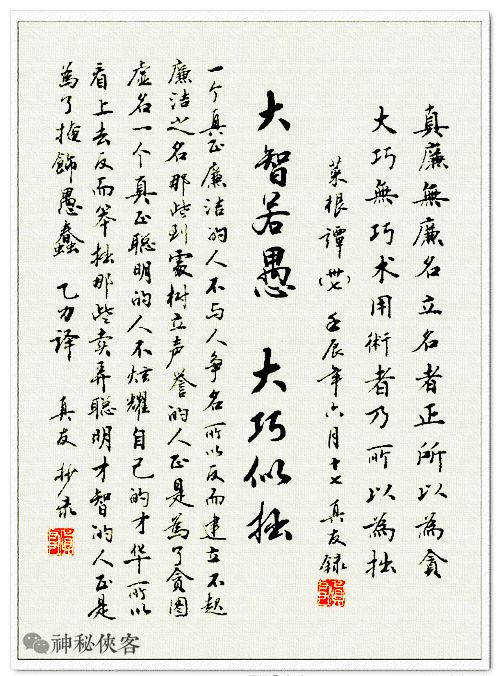 真廉無廉名立名者正所以為貪
大巧無巧术用術者乃所以為拙
菜根譚 壬辰年六月十七 真友録
大智若愚 大巧似拙
一个真正廉洁的人不与人争名所以反而建立不起
廉洁之名那些到處树立声誉的人正是為了贪图
虚名一个真正聪明的人不炫耀自己的才华所以
看上去反而笨拙那些卖弄聪明才智的人正是
為了掩飾愚蠢 乙力译 真友抄录
神秘俠客